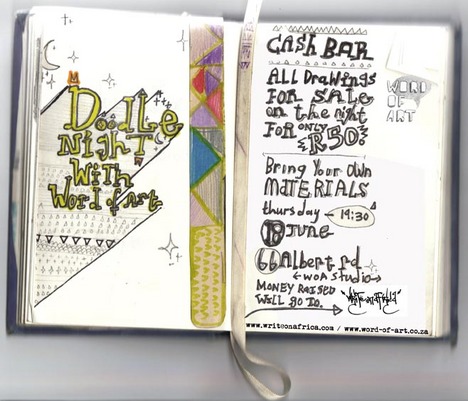 Doodle
Night
With
Word of Art
Cash Bar
All Drawings
For Sale
on the night
For only
R50!
Bring Your Own
Materials
thursday – 19:30
18 June
66 Albert rd
WOA Studio
Money Raised
Will go to.
Write on Africa
WORD
OF
ART
www.writeonafrica.com / www.word-of-art.co.za